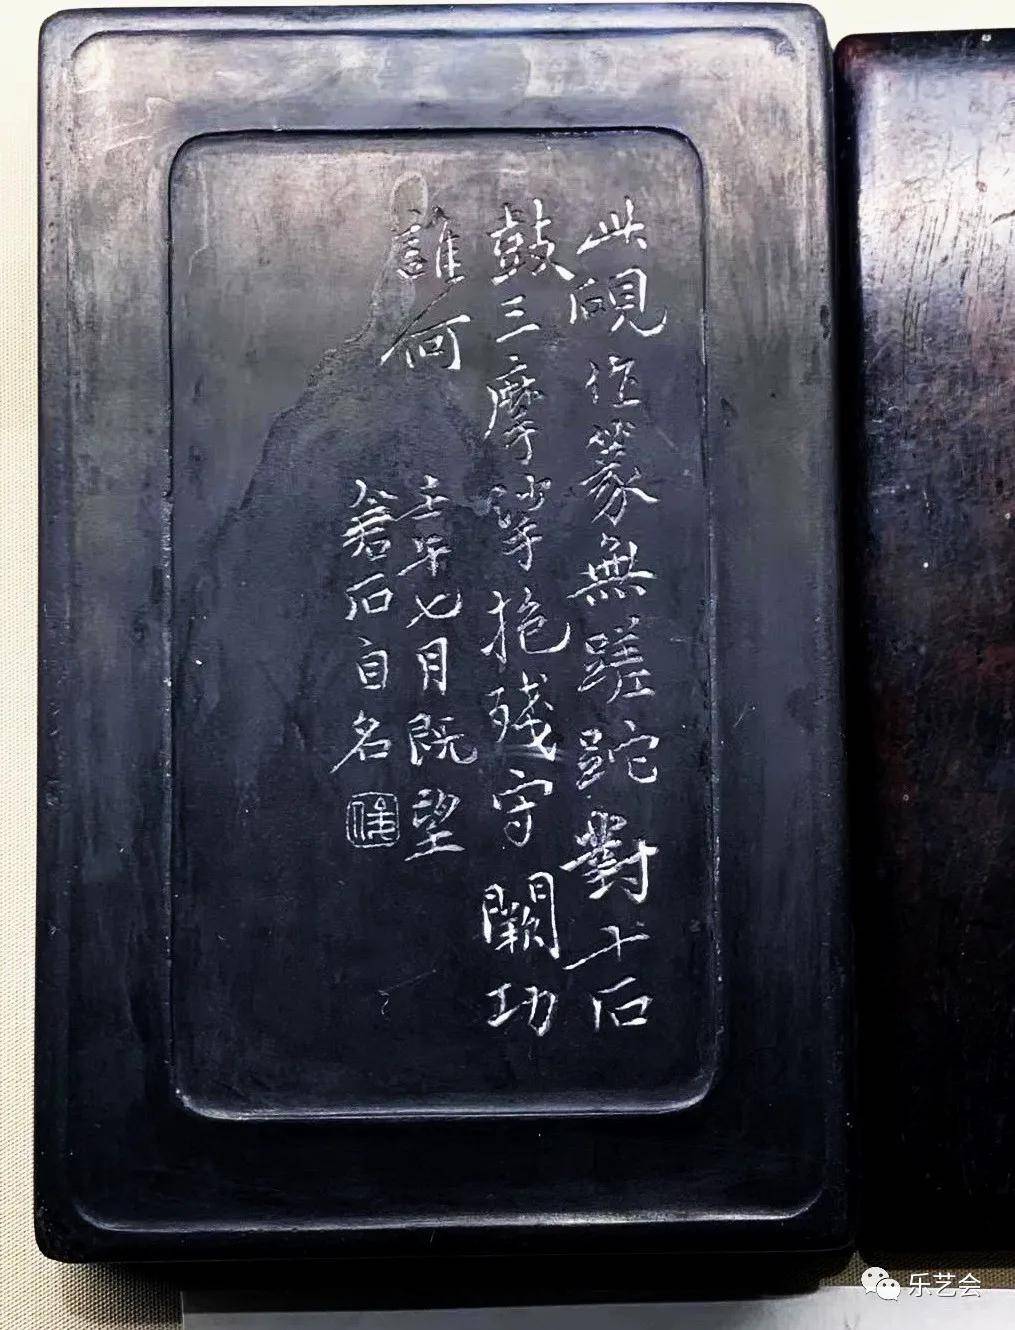 此硯作篆無蹉跎對十石
鼓三摩挲抱殘守闕功
誰何
壬午七月既望
倉石自名
乐艺会